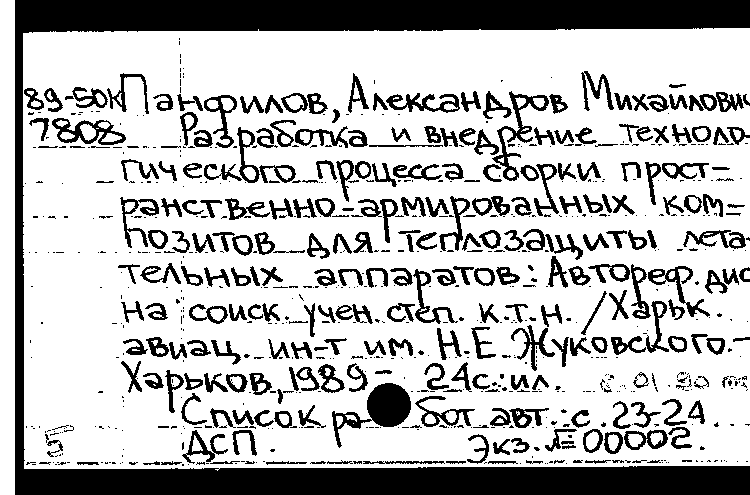 89-50К Панфилов, Александров Михайлович
7808 Разработка и внедрение техноло-
гического процесса сборки прост-
ранственно-армированных ком-
позитов для теплозащиты лета-
тельных аппаратов: Автореф. дис
на соиск. учен. степ. к.т.н. /Харьк.
авиац. ин-т им. Н.Е. Жуковского.-
Харьков, 1989- 24с.:ил.
Список работ авт.: с. 23-24.
5 ДСП. Экз. № 00002.